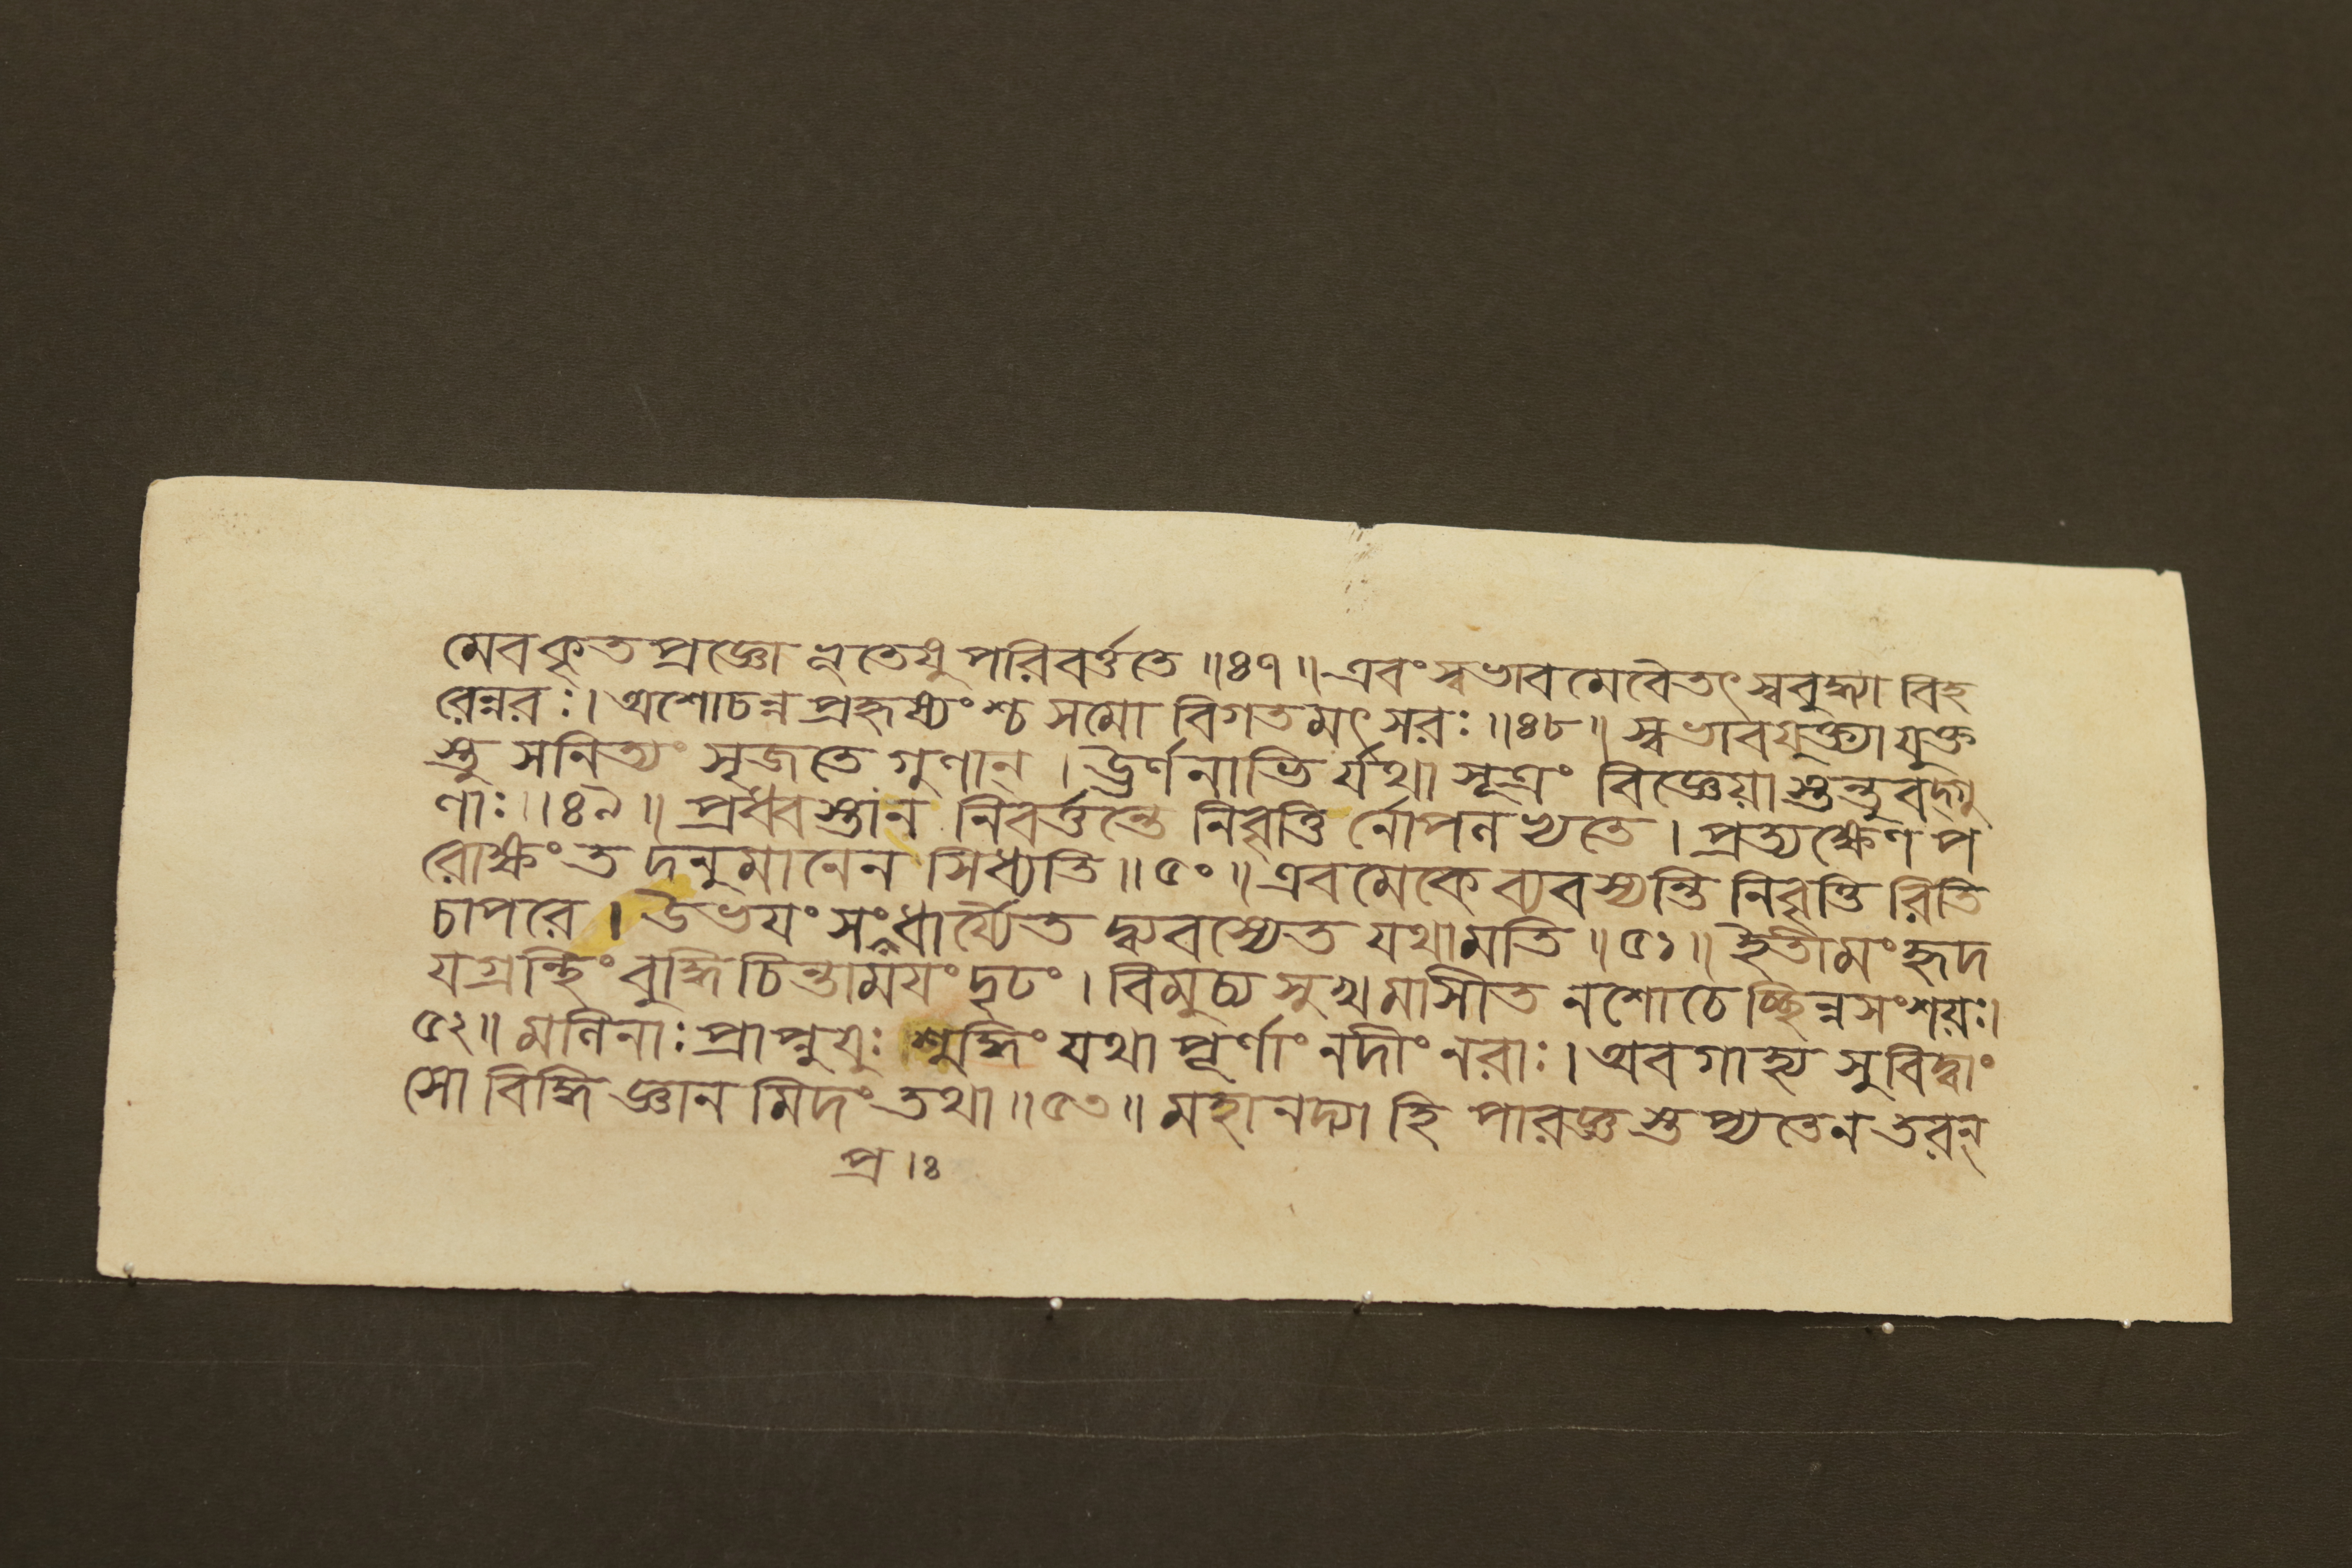 মেবকৃতপ্রজ্ঞো নভূতেষু পরিবর্ত্ততে ॥৪৭॥ এবং স্বভাবমেবৈতৎ স্ববুদ্ধ্যা বিহ
রেন্নরঃ। অশোচন্নপ্রহৃষ্যংশ্চ সমো বিগতমৎসরঃ ॥৪৮॥ স্বভাবযুক্ত্যা যুক্ত
স্তু সনিত্যং সৃজতে গুণান্ । ঊর্ণনাভির্যথা সূত্রং বিজ্ঞেয়াস্তন্তুবদ্গু
ণাঃ ॥৪৯॥ প্রধ্বস্তান নিবর্ত্তন্তে নিবৃত্তি র্নোপলভ্যতে । প্রত্যক্ষেণ প
রোক্ষং তদনুমানেন সিধ্যতি ॥৫০॥ এবমেকে ব্যবস্যন্তি নিবৃত্তি রিতি
চাপরে । উভযং সংধার্য্যৈতদ্ব্যবস্যেত যথামতি ॥৫১॥ ইতীমং হৃদ
যগ্রন্থিং বুদ্ধিচিন্তাময়ং দৃঢং । বিমুচ্য সুখমাসীত নশোচেচ্ছিন্নসংশয়ঃ।
৫২॥ মলিনাঃ প্রাপ্নুযুঃ শুদ্ধিং যথা পূর্ণাং নদীং নরাঃ । অবগাহ্য সুবিদ্বাং
সো বিদ্ধি জ্ঞানমিদং তথা ॥৫৩॥ মহানদ্যা হি পারজ্ঞস্তপ্যতেন তরন্
প্র ।ঃ